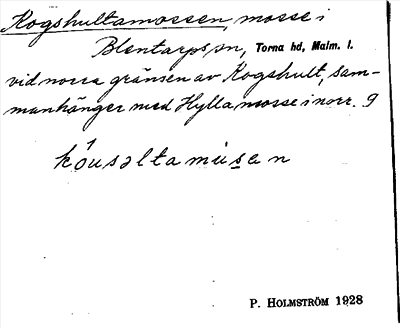 Kogshultamossen, mosse i
Blentarps sn, Torna hd, Malm. l.
vid norra gränsen av Kogshult, sam-
manhänger med Hylla mosse i norr. 9
kóusəltamúsen
P. HOLMSTRÖM 1928